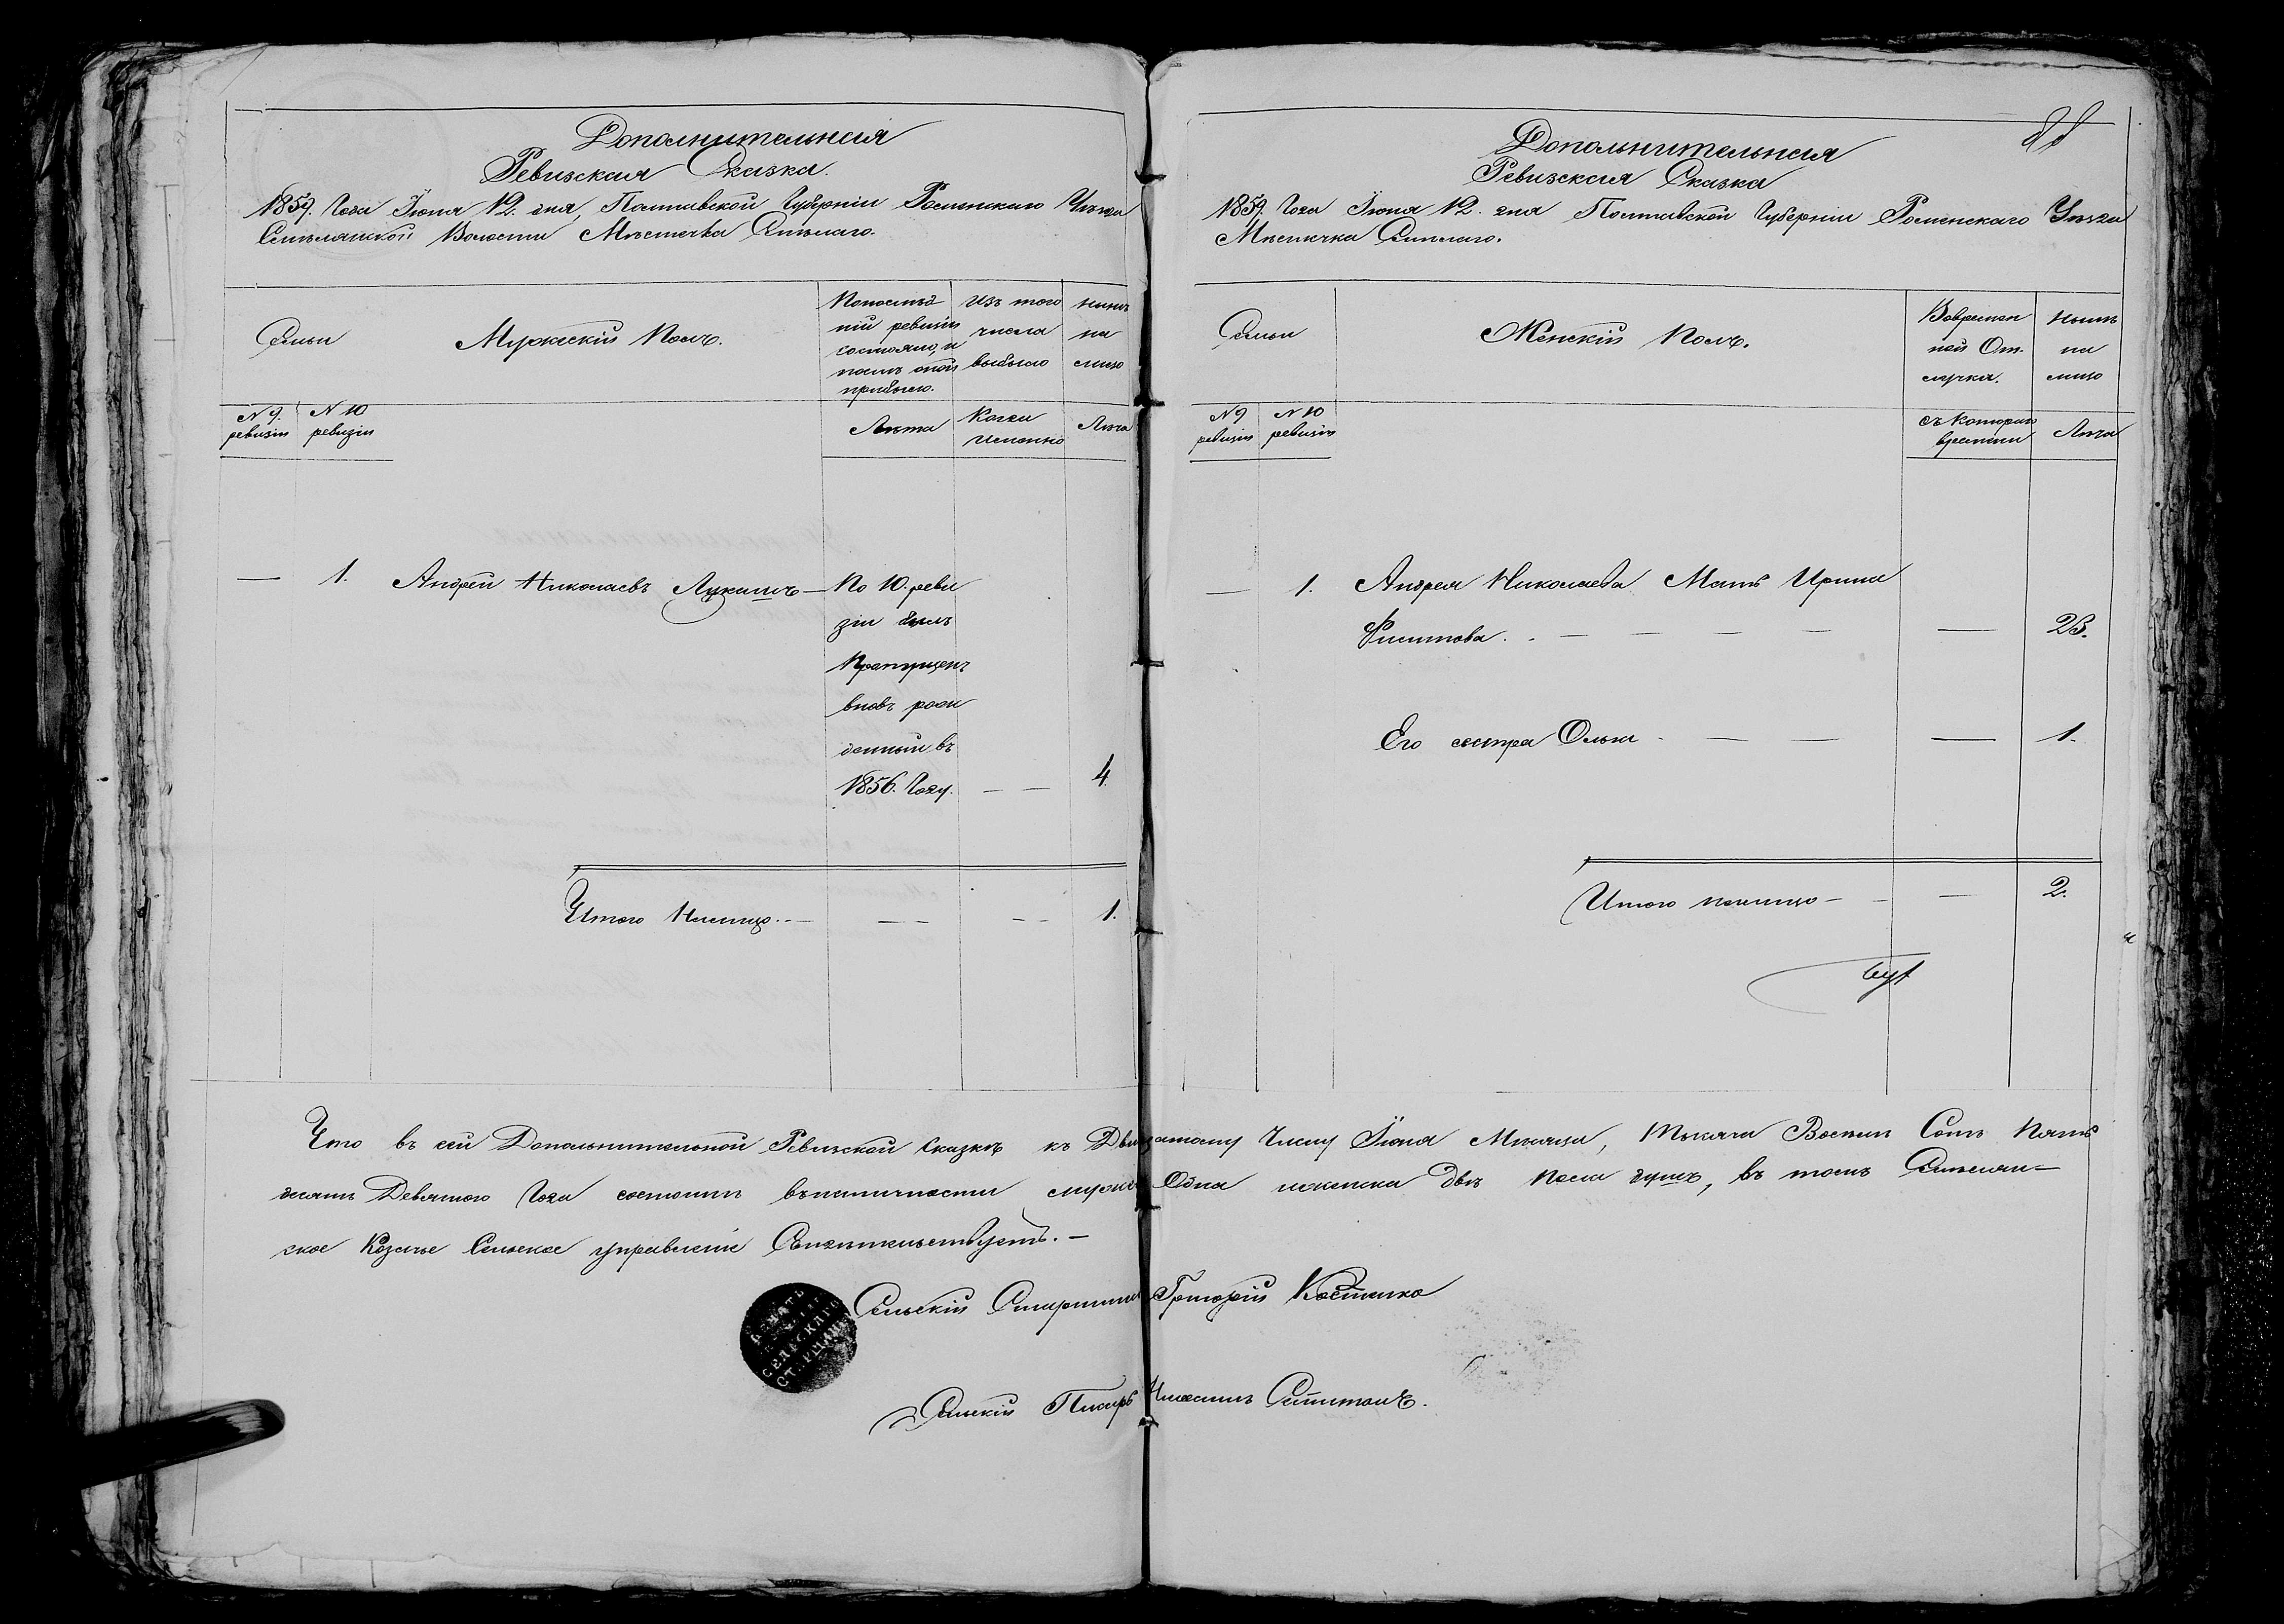 Дополнительная
Ревизская Сказка.
1859. Года Іюня 12. дня, Полтавской Губерніи Роменскаго Уѣзда
Смѣлянской Волости Мѣстечка Смѣлаго.
Семьи
Мужескій Полъ.
По послѣд
ній ревизіи
состояло, и
послѣ оной
прибыло.
Изъ того
числа
выбыло
Нынѣ
на
лицо
N 9.
ревизіи
N 10
ревизіи
Лѣта
Когда
именно
Лѣта
— 1. Андрей Николаевъ Лукашъ — По 10. реви
зіи былъ
Пропущенъ
вновь рож
денный въ
1856. Году. — — 4.
Итого Налицо. — — — 1.
Дополнительная
Ревизская Сказка
1859. Года Іюня 12. дня Полтавской Губерніи Роменскаго Уѣзда
Мѣстечка Смѣлаго.
Семьи
Женскій Полъ.
Вовремен
ной От-
лучка.
Нынѣ
на
лицо
N 9
ревизіи
N 10
ревизіи
съ Котораго
времени
Лѣта
— 1. Андрея Николаева Мать Ирина
— — — — — 23.
Его сестра Ольга — — — — 1.
Итого налицо — — — 2.
Что въ сей Дополнительной Ревизской Сказкѣ къ Двѣнадцатому Числу Іюня Мѣсяца, Тысяча Восемь Сотъ Пять
десятъ Девятого Года состоитъ въ наличности мужеска Одна и женска Двѣ Пола душъ, въ томъ Смѣлян-
ское Козачье Сельское управленіе Свидѣтельствуетъ. —
ПЕЧАТЬ
СЕЛЬСКАГО
СТАРШИНЫ
Сельскій Старшина Григорій Костенко
Сельскій Писарь